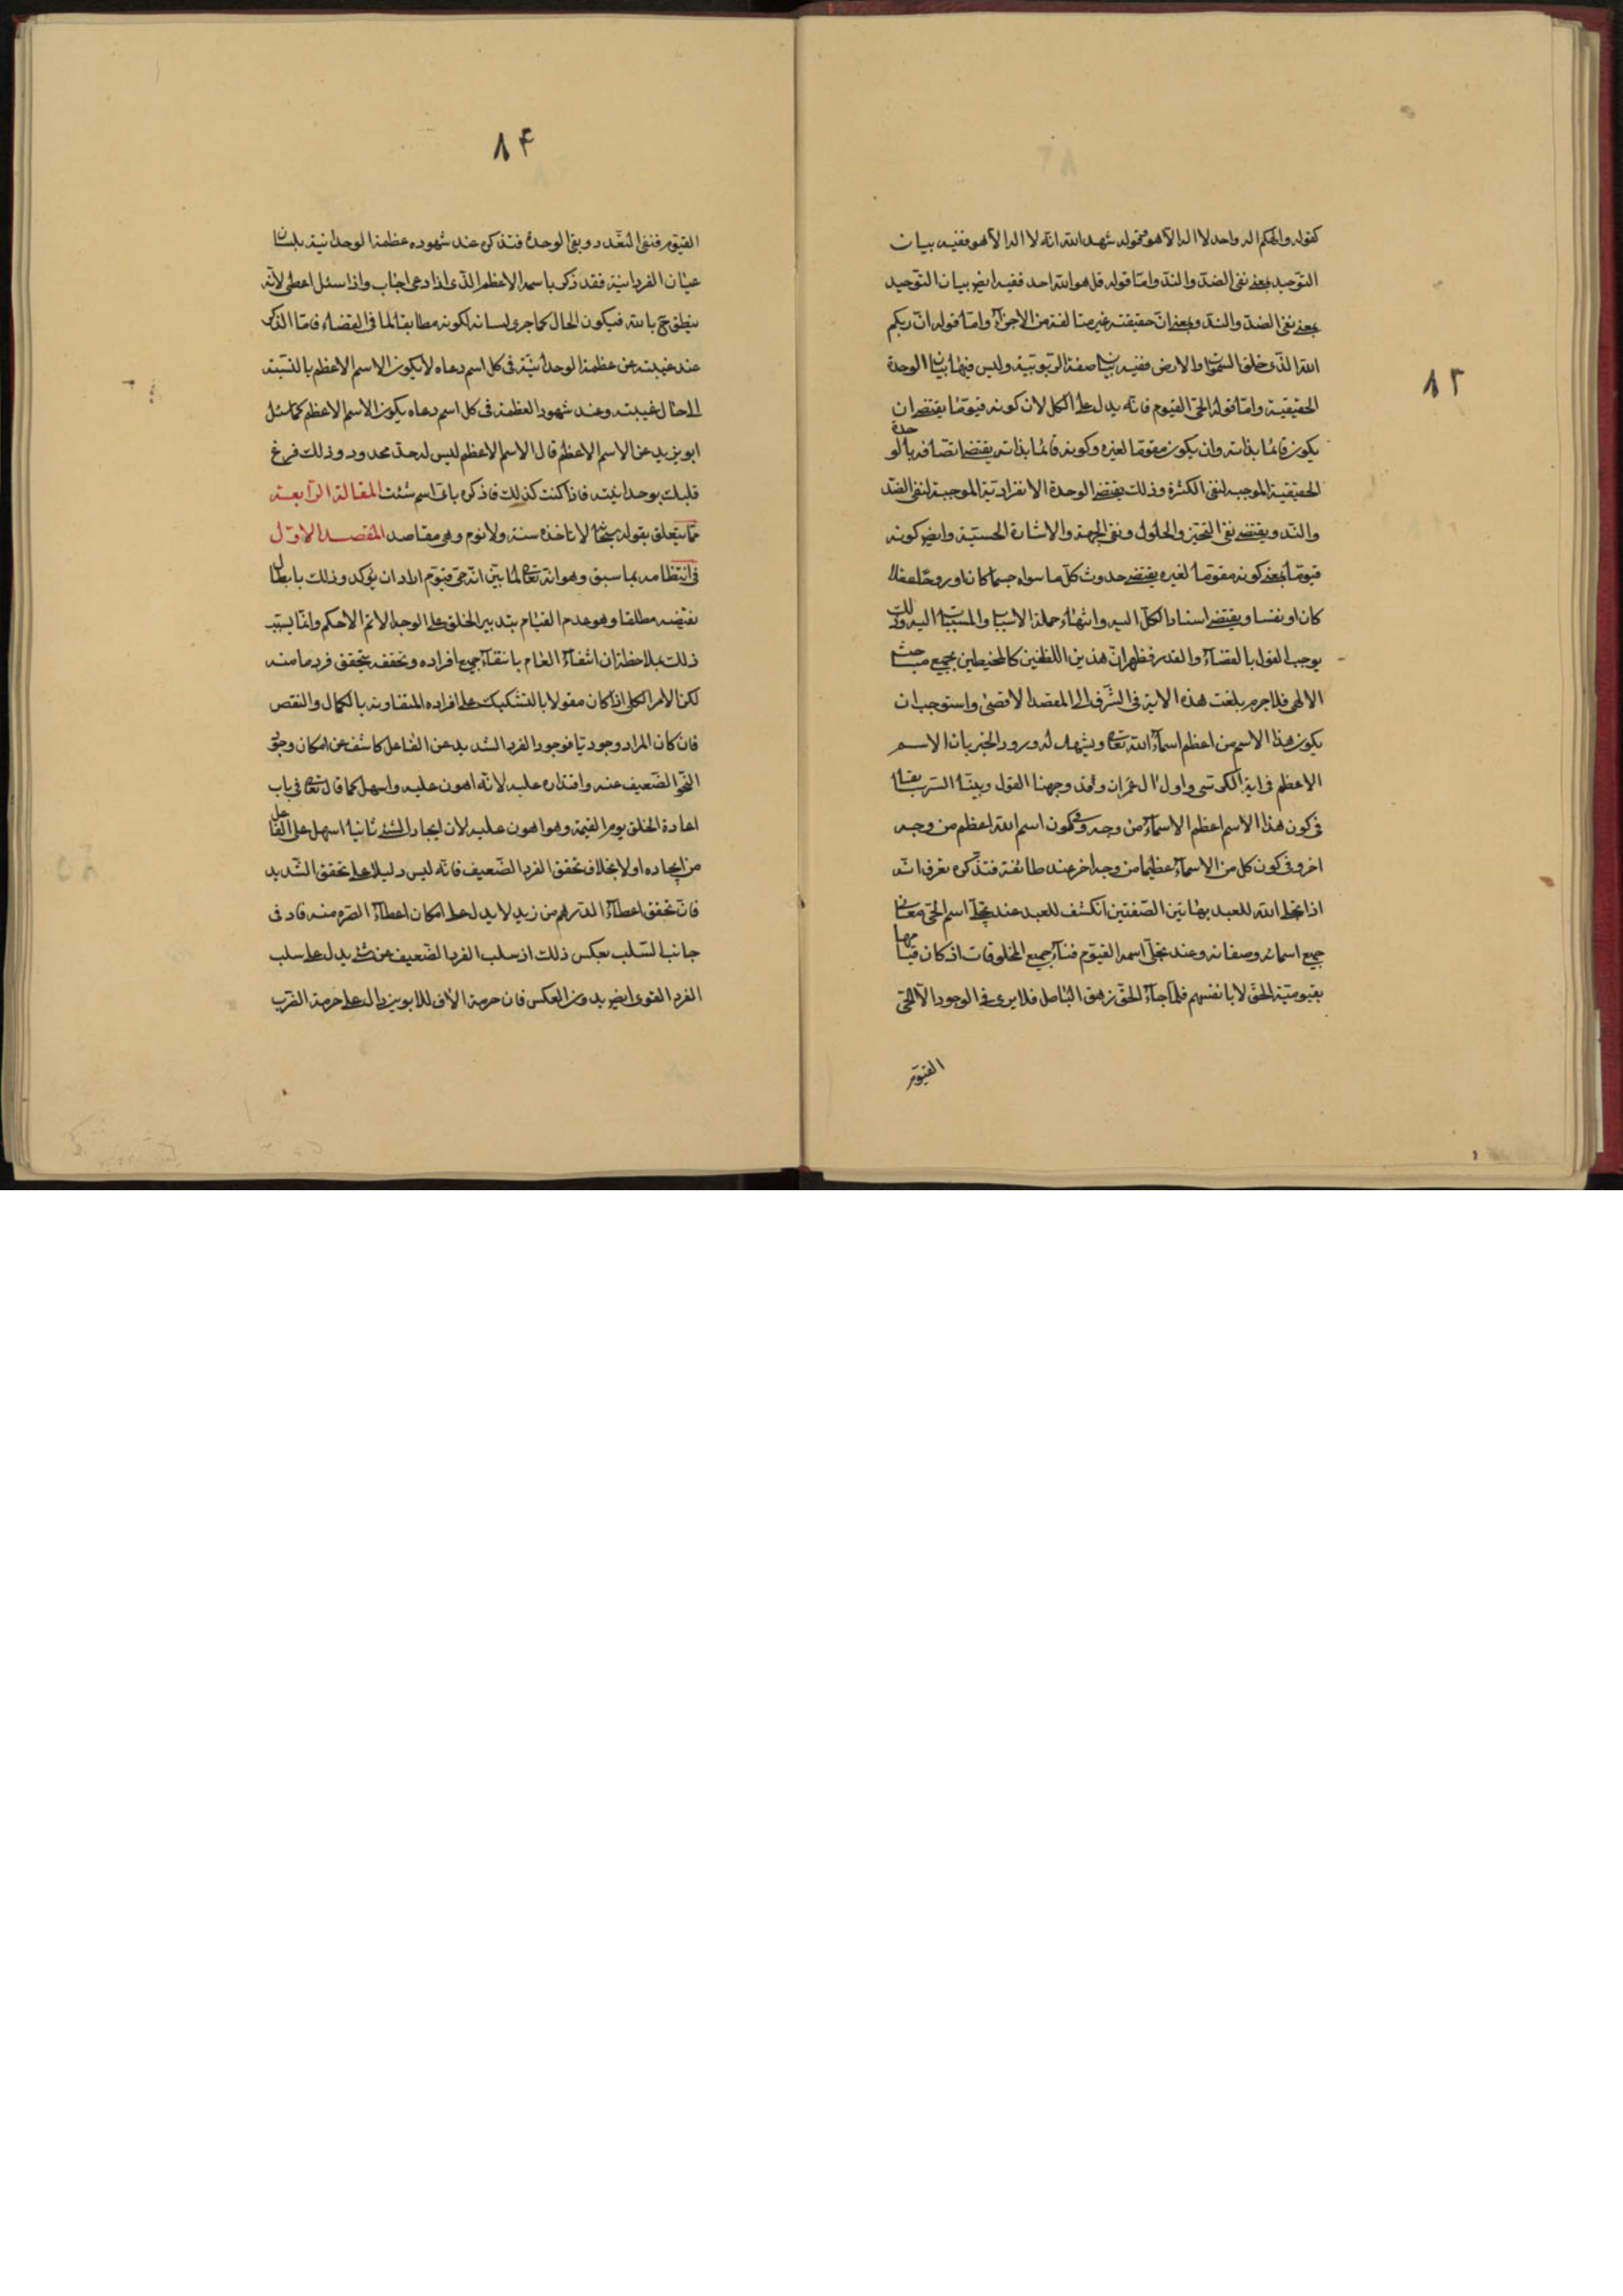 ٨٣
كقوله والهكم اله واحد لا اله الا هو نحو قوله شهد الله انه لا اله الا هو ففيه بيان
التوحيد بمعنى نفى الضدّ والندّ وامّا قوله قل هو الله احد ففيه ايض بيان التوحيد
بمعنى نفى الضدّ والندّ وبمعنى انّ حقيقته غير متالفة من الاجزآء وامّا قوله انّ ربكم
الله الذّى خلق السّموات والارض ففيه بيان صفة الربوبيّة وليس فيها بيان الوحدة
الحقيقية وامّا قوله الحىّ القيوم فانّه يدل على الكل لان كونه قيومّا يقتضى ان
يكون قائما بذاته وان يكون مقوما لغيره وكونه قائما بذاته يقتضى اتصافه بالوحدة
الحقيقية الموجبة لنفى الكثرة وذلك يقتضى الوحدة الانفراديّة الموجبة لنفى الضدّ
والندّ ويقتضى نفى التحيّز والحلول ونفى الجهة والاشارة الحسيّة وايض كونه
قيومّا بمعنى كونه مقوما لغيره يقتضى حدوث كلّ ما سواه جسما كان او روحا عقلا
كان او نفسا ويقتضى اسناد الكلّ اليه وانتهاء جملة الاسباب والمسببات اليه وذلك
يوجب القول بالقضآء والقدر فظهر انّ هذين اللفظين كالمحيطين بجميع مباحث
الالهى فلاجرم بلغت هذه الاية فى الشّرف الى المقصد الاقصى واستوجب ان
يكون هذا الاسم من اعظم اسمآء الله تعالى ويشهد له ورود الخبر بان الاسم
الاعظم فى اية الكرسى واول ال عمران وقد وجهنا القول وبينّا السّر سابقا
فى كون هذا الاسم اعظم الاسمآء من وجه وفى كون اسم الله اعظم من وجه
اخر وفى كون كل من الاسمآء عظيما من وجه اخر عند طائفة فتذكره تعرف انه
اذا تجلى الله للعبد بهاتين الصّفتين انكشف للعبد عند تجلى اسم الحىّ معانى
جميع اسمائه وصفاته وعند تجلى اسمه القيّوم فنآء جميع المخلوقات اذ كان قيامها
بقيوميّة الحقّ لا بانفسهم فلمّا جآء الحقّ زهق الباطل فلا يرى فى الوجود الاّ الحىّ
القيوّم
٨۴
القيوّم فنفى التعّدد وبقى الوحدة فتذكره عند شهوده عظمة الوحدانية بلسان
عيان الفردانيّة فقد ذكره باسمه الاعظم الذّى اذا دعى اجاب واذا سئل اعطى لانّه
ينطق ح بالله فيكون الحال كما جرى لسانه لكونه مطابقا لما فى القضاء فامّا الذكر
عند غيبته عن عظمة الوحدانيّة فى كل اسم دعاه لا يكون الاسم الاعظم بالنسّبة
الى حال غيبته وعند شهود العظمة فى كل اسم دعاه يكون الاسم الاعظم كما سئل
ابو يزيد عن الاسم الاعظم قال الاسم الاعظم ليس له حدّ محدود وذلك فرغ
قلبك بوحدانيّته فاذا كنت كذلك فاذكره باىّ اسم شئت المقالة الرّابعة
مّما يتعلق بقوله سبحانه لا تاخذه سنة ولا نوم وفيه مقاصد المقصد الاوّل
فى انتظامه بما سبق وهو انه تعالى لمّا بيّن انّه حىّ قيوّم اراد ان يؤكد وذلك بابطال
نقيضه مطلقا وهو عدم القيام بتدبير الخلق على الوجه الاتم الاحكم وانمّا يستتب
ذلك بملاحظة ان انتفآء العام بانتفآء جميع افراده وتحققه بتحقق فرد ما منه
لكن الامر الكلى اذا كان مقولا بالتشكيك على افراده المتفاوتة بالكمال والنقص
فان كان المراد وجوديّا فوجود الفرد الشديد عن الفاعل كاشف عن امكان وجود
النّحو الضّعيف عنه واقتداره عليه لانّه اهون عليه واسهل كما قال تعالى فى باب
اعادة الخلق يوم القيمة وهو اهون عليه لان ايجاد الشئ ثانيا اسهل على الفاعل
من ايجاده اولا بخلاف تحقق الفرد الضّعيف فانّه ليس دليلا على تحقق الشّديد
فانّ تحقق اعطآء الدّرهم من زيد لا يدل على امكان اعطآء الصّره منه فاد فى
جانب السّلب بعكس ذلك اذ سلب الفرد الضّعيف عن شئ يدل على سلب
الفرد القوى ايض بدون العكس فان حرمة الاف للابوين دال على حرمة الضّرب